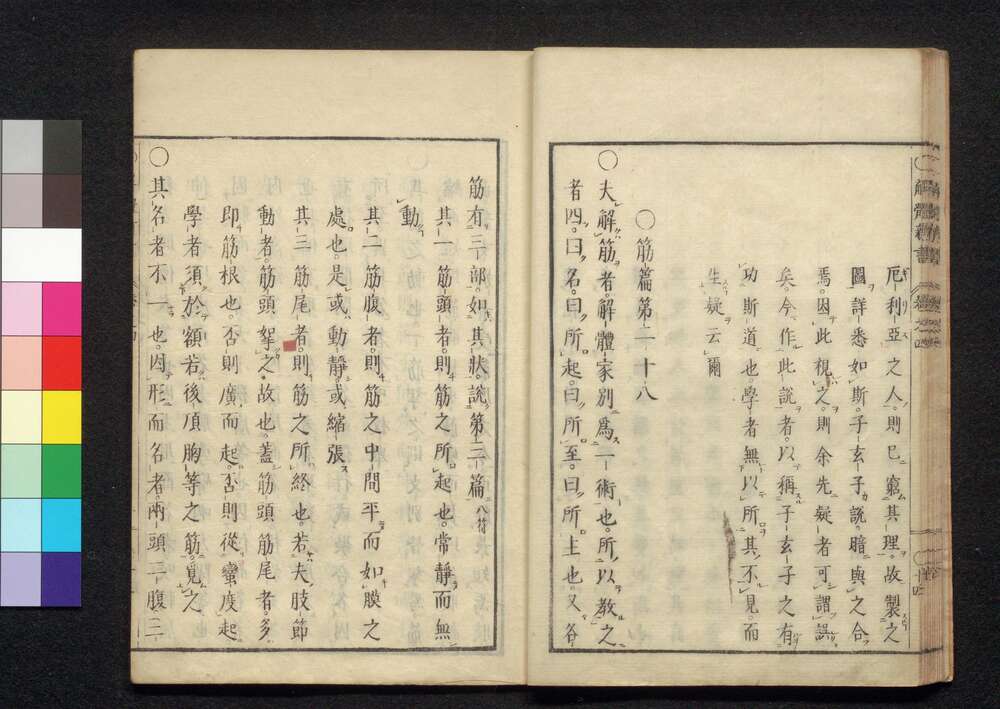 厄利亞之人則已窮其理故製之
圖詳悉如斯子玄子說暗與之合
焉因此視之則余先疑者可謂誤
矣今作此說者以稱子玄子之有
功斯道也學者無以所其不見而
生疑云爾
○筋篇第二十八
○夫解筋者解體家別爲一術也所以教之
者四曰名曰所起曰所至曰所主也又各
筋有三部如其狀說第三篇八符
其一筋頭者則筋之所起也常靜而無
動
其二筋腹者則筋之中間平而如膜之
處也是或動靜或縮張
其三筋尾者則筋之所終也若夫肢節
動者筋頭挐之故也蓋筋頭筋尾者多
卽筋根也否則廣而起否則從蠻度起
學者須於額若後頂胸等之筋見之
○其名者不一也因形而名者兩頭三腹三
解體新書
卷之四
十四